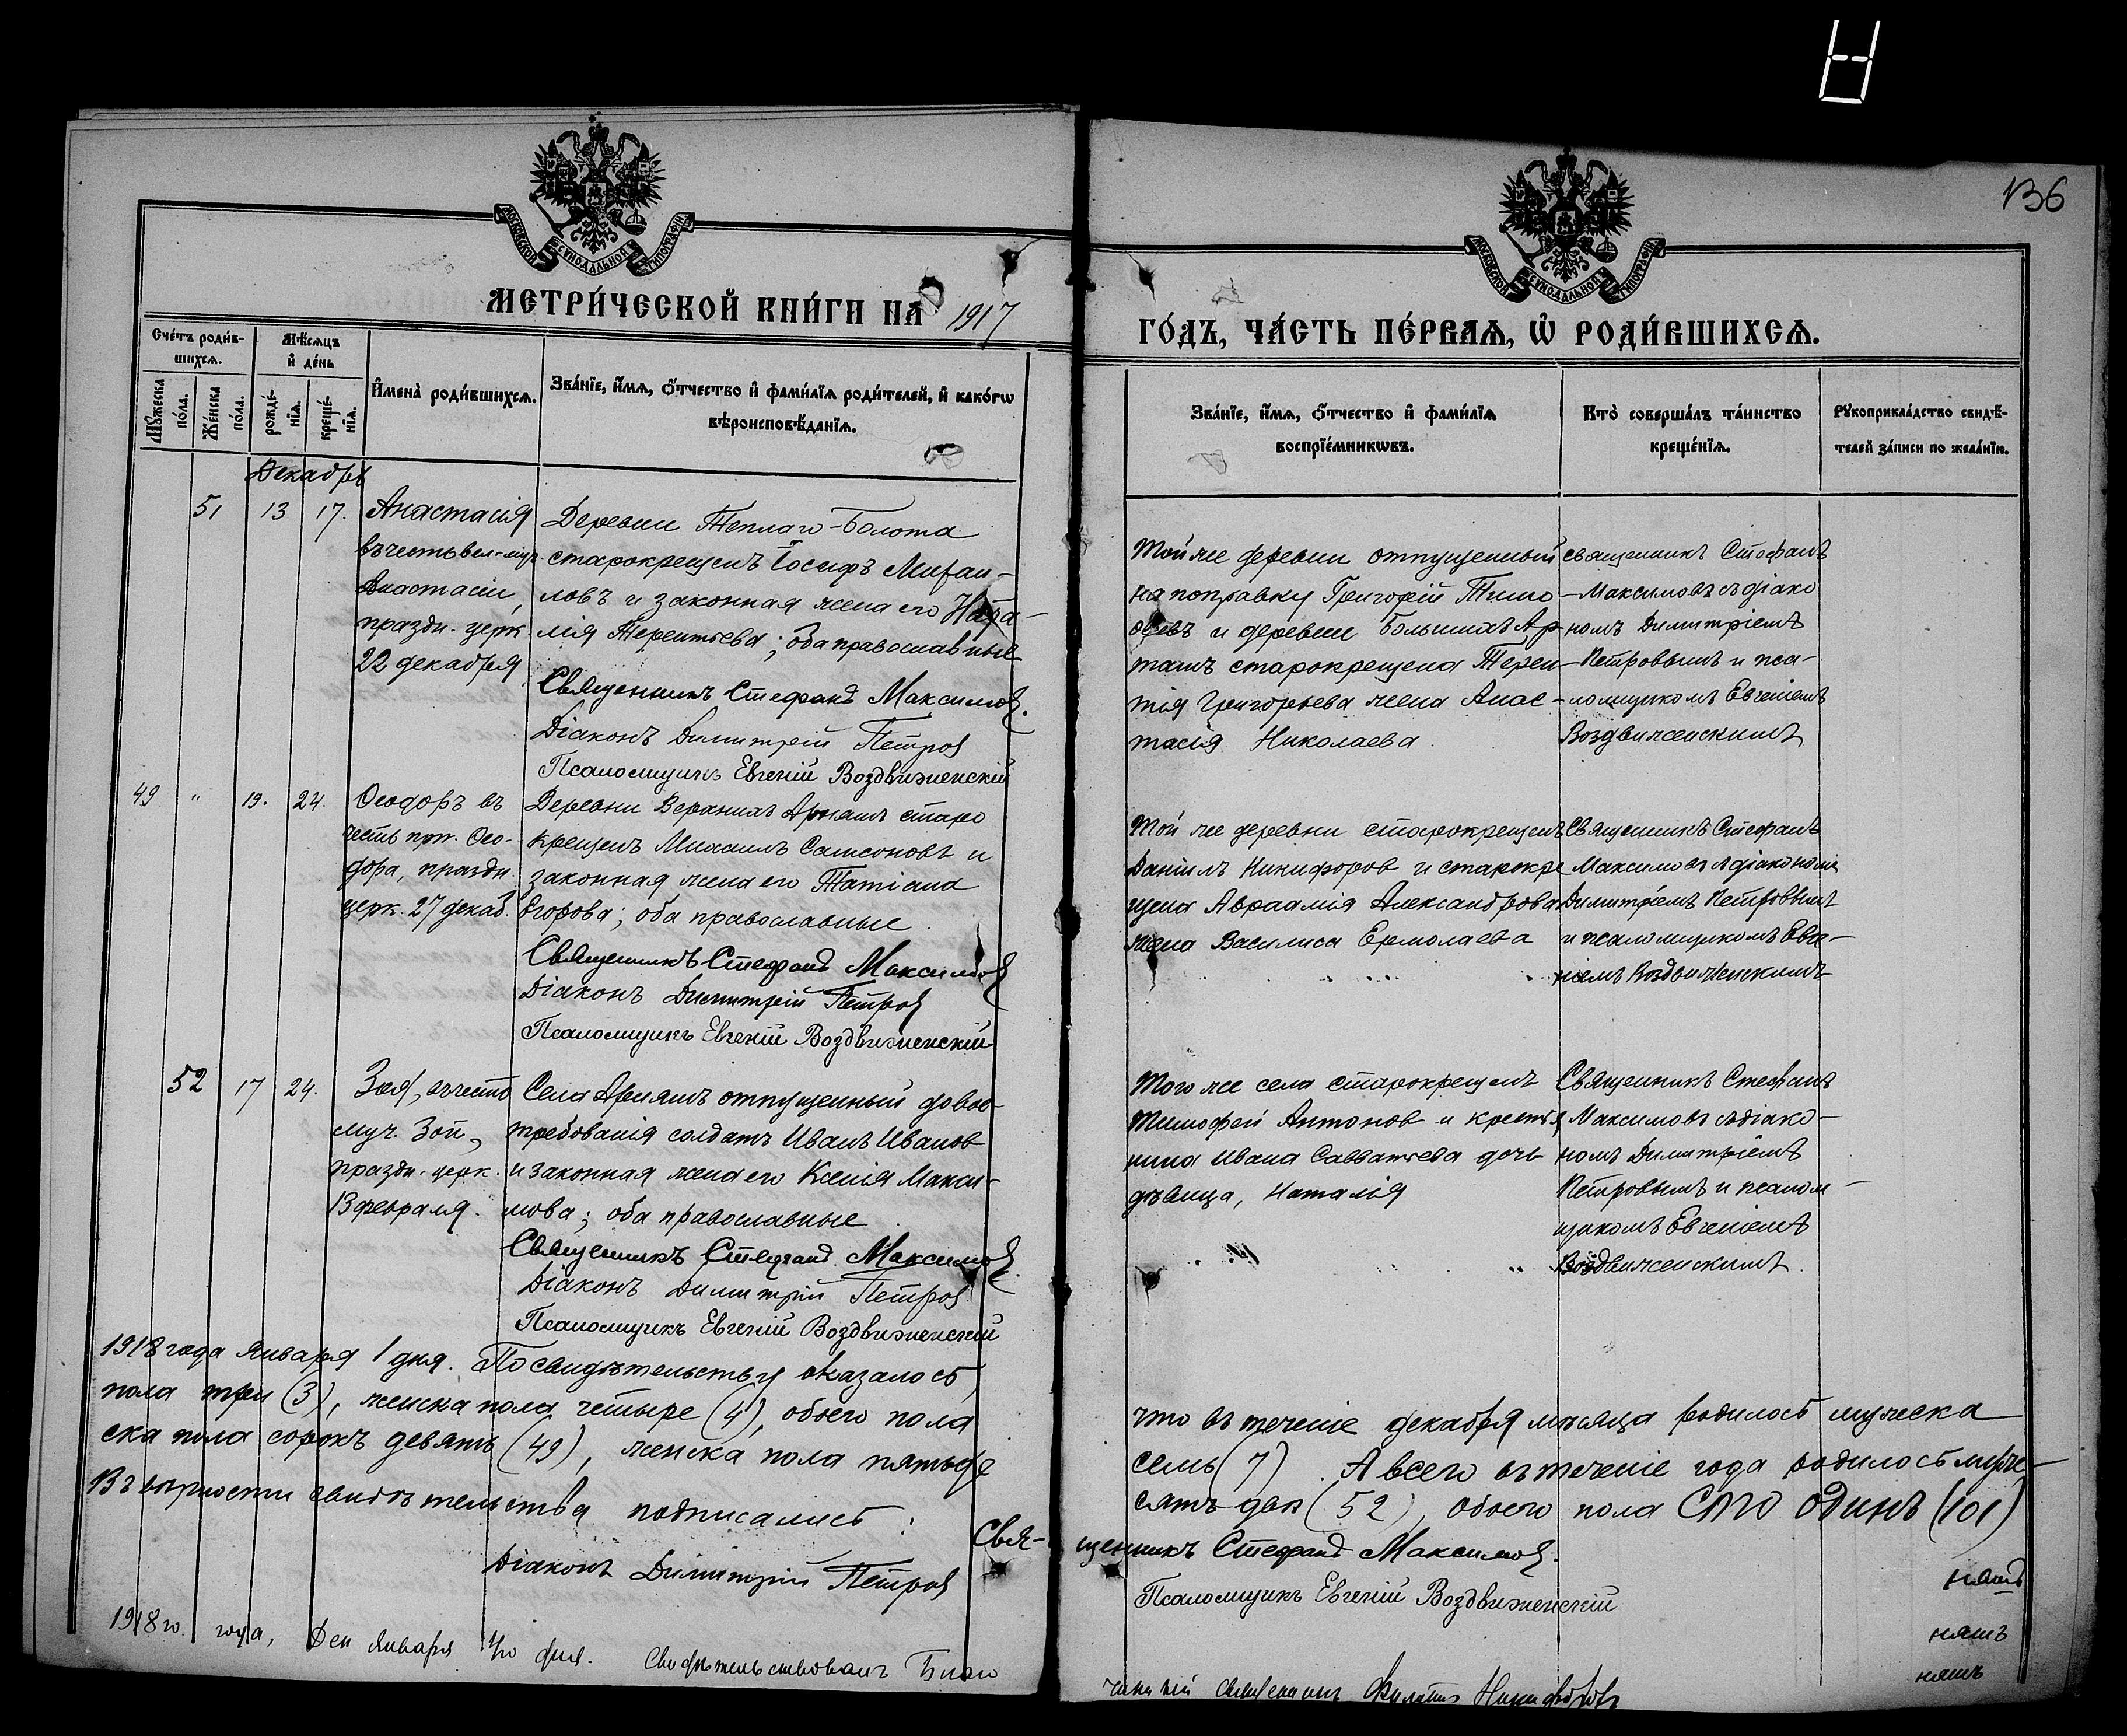 136
МОСКОВСКОЙ СѴНОДАЛЬНОЙ ТИПОГРАФІИ
МОСКОВСКОЙ СѴНОДАЛЬНОЙ ТИПОГРАФІИ
МЕТРИ́ЧЕСКОЙ КНИ́ГИ НА 1917
ГО́ДЪ, ЧА́СТЬ ПЕ́РВАѦ, Ѡ҆ РОДИ́ВШИХСѦ.
Сче́тъ роди́в-
шихсѧ.
Мѣ́сѧцъ
и҆ де́нь
Мꙋ́жеска
по́ла.
Же́нска
по́ла.
рожде́-
нїѧ.
креще́-
нїѧ.
И҆мена̀ роди́вшихсѧ.
Зва́нїе, и҆́мѧ, ѻ҆́тчество и҆ фами́лїѧ роди́телей, и҆ како́гѡ
вѣроисповѣ́данїѧ.
Зва́нїе, и҆́мѧ, ѻ҆́тчество и҆ фами́лїѧ
воспрїе́мникѡвъ.
Кто̀ соверша́лъ та́инство
креще́нїѧ.
Рꙋкоприкла́дство свидѣ́-
телей за́писи по жела́нїю.
Декабрь
51 13 17.
Анастасія
въ честь вел-муч.
Анастасіи,
праздн. церк.
22 декабря
Деревни Теплаго-Болота
старокрещенъ Іосифъ Михаи-
ловъ и законная жена его Ната-
лія Терентьева; оба православные
Священникъ Стефанъ Максимов.
Діаконъ Димитрій Петров
Псаломщикъ Евгеній Воздвиженскій
Той же деревни отпущенный
на поправку Григорій Тимо-
ѳеевъ и деревни Большихъ Ар-
машъ старокрещена Терен-
тія Григорьева жена Анас-
тасія Николаева.
священникъ Стефанъ
Максимовъ съ діако
номъ Димитріемъ
Петровымъ и пса-
ломщикомъ Евгеніемъ
Воздвиженскимъ
49 " 19. 24.
Ѳеодоръ въ
честь прп. Ѳео-
дора, праздн.
церк. 27 декаб.
Деревни Верхнихъ Арняшъ старо
крещенъ Михаилъ Самсоновъ и
законная жена его Татіана
Егорова; оба православные.
Священникъ Стефанъ Максимов
Діаконъ Димитрій Петров
Псаломщикъ Евгеній Воздвиженскій
Той же деревни старокрещенъ
Даніилъ Никифоров и старокре
щена Авраамія Александрова
жена Василиса Ермолаева
Священникъ Стефанъ
Максимовъ съ діакономъ
Димитріемъ Петровымъ
и псаломщикомъ Евге-
ніемъ Воздвиженскимъ
52 17 24.
Зоя, въ честь
муч. Зои,
праздн. церк.
13 февраля.
Села Арняшъ отпущенный до вос-
требованія солдатъ Иванъ Иванов
и законная жена его Ксенія Макси-
мова; оба православные
Священникъ Стефанъ Максимов.
Діаконъ Димитрій Петров
Псаломщикъ Евгеній Воздвиженскій
Того же села старокрещенъ
Тимофей Антонов и крестья
нина Ивана Савватеева дочь
дѣвица, Наталія
Священникъ Стефанъ
Максимовъ съ діако-
номъ Димитріемъ
Петровымъ и псалом-
щикомъ Евгеніемъ
Воздвиженскимъ.
1918 года января 1 дня. По свидѣтельству оказалось,
что въ теченіе декабря мѣсяца родилось мужеска
пола три (3), женска пола четыре (4), обоего пола
семь (7). А всего въ теченіе года родилось муже-
ска пола сорокъ девять (49), женска пола пятьде
сятъ два (52), обоего пола сто одинъ (101)
Въ вѣрности свидѣтельства подписались: Свя-
щенникъ Стефанъ Максимов.
Діаконъ Димитрій Петров
Псаломщикъ Евгеній Воздвиженскій
1918 го года, января дня. Свидѣтельствовалъ Благо
чинный священникъ Никифоровъ